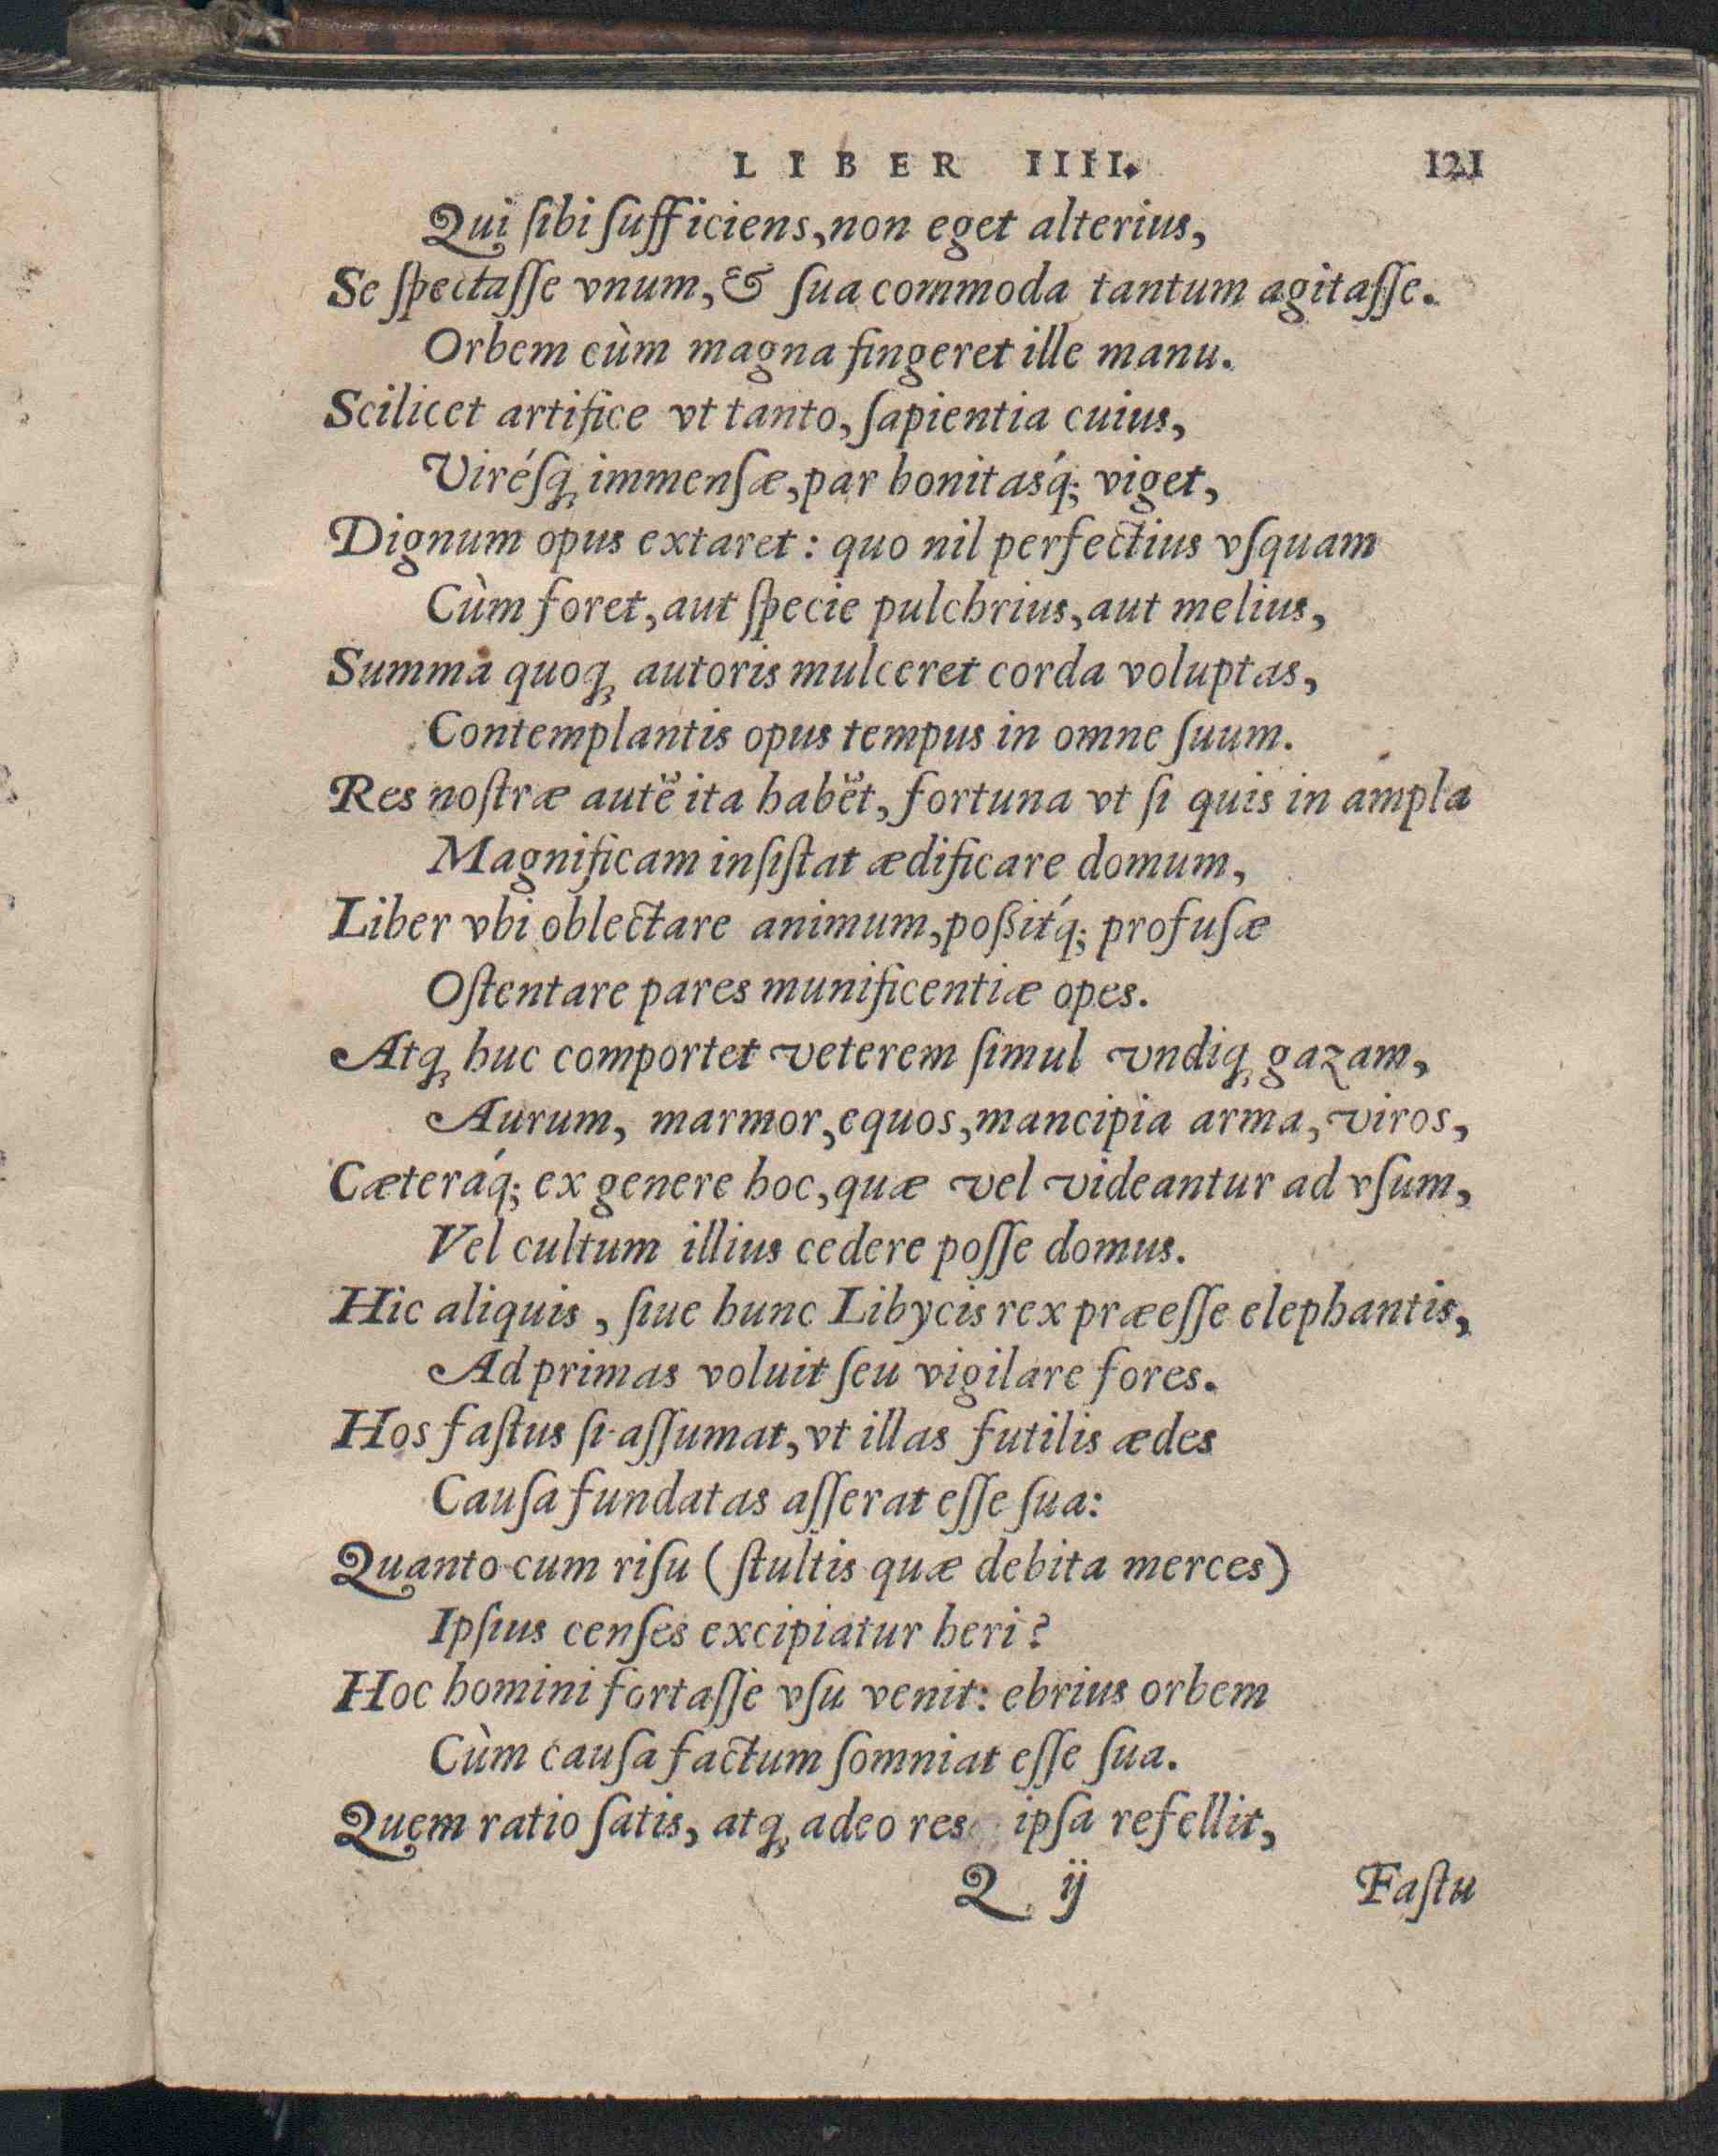 LIBER IIII. 121
Qui ſibi ſufficiens, non eget alterius,
Se ſpectaſſe vnum, & ſua commoda tantum agitaſſe.
Orbem cùm magna fingeret ille manu.
Scilicet artifice vt tanto, ſapientia cuius,
Viréſq́ꝫ immenſæ, par bonitasq́; viget,
Dignum opus extaret: quo nil perfectius vſquam
Cùm foret, aut ſpecie pulchrius, aut melius,
Summa quoqꝫ autoris mulceret corda voluptas,
Contemplantis opus tempus in omne ſuum.
Res noſtræ autẽ ita habẽt, fortuna vt ſi quis in ampla
Magnificam inſiſtat ædificare domum,
Liber vbi oblectare animum, poßitq́; profuſæ
Oſtentare pares munificentiæ opes.
Atqꝫ huc comportet veterem ſimul vndiqꝫ gazam,
Aurum, marmor, equos, mancipia arma, viros,
Cæteráq; ex genere hoc, quæ vel videantur ad vſum,
Vel cultum illius cedere poſſe domus.
Hic aliquis, ſiue hunc Libycis rex præeſſe elephantis,
Ad primas voluit ſeu vigilare fores.
Hos faſtus ſi aſſumat, vt illas futilis ædes
Cauſa fundatas aſſerat eſſe ſua:
Quanto cum riſu (ſtultis quæ debita merces)
Ipſius cenſes excipiatur heri?
Hoc homini fortaſſe vſu venit: ebrius orbem
Cùm cauſa factum ſomniat eſſe ſua.
Quem ratio ſatis, atqꝫ adeo res ipſa refellit,
Q ij Faſtu